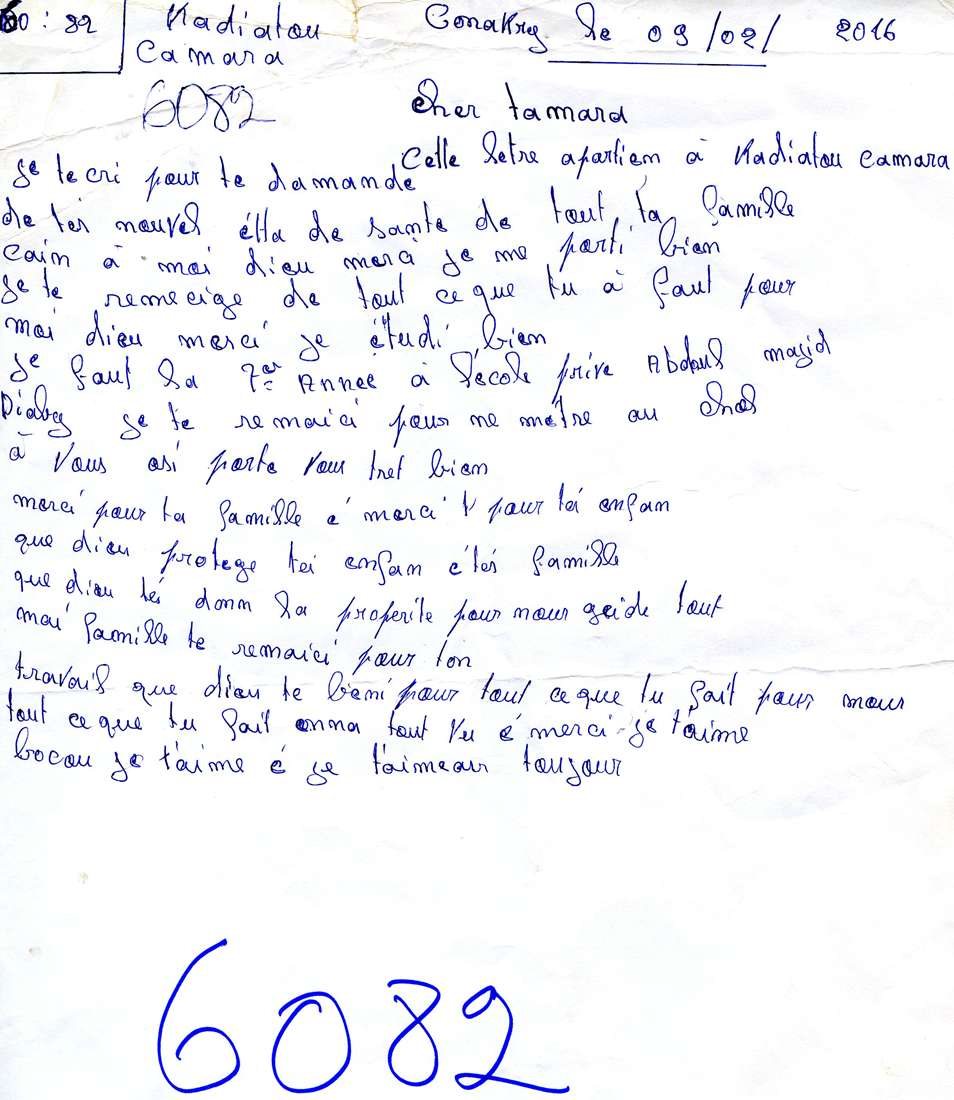 60 : 82
Kadiatou
Camara
Conakry le 09/02/ 2016
6082
Cher tamara
Cette letre apartien à Kadiatou camara
je te cri pour te damande
de tes nouvel étta de sante de tout ta famille
Caim à moi dieu merci je me parti bien
je te remecige de tout ce que tu à faut pour
moi dieu merci je étudi bien
je faut la 7er Annee à l'école prive Abdoul majid
Diaby je te remaici pour ne metre au
à Vous asi porte Vous tret bien
merci pour ta famille é merci pour téi enfan
que dieu protege tei enfan é tés famille
que dieu tés donn la properite pour nour geide tout
moi famille te remaici pour ton
travail que dieu te beni pour tout ce que tu fait pour nour
tout ce que tu fait onna tout Vu é merci je t'aime
bocou je t'aime é je t'aimeair toujour
6082